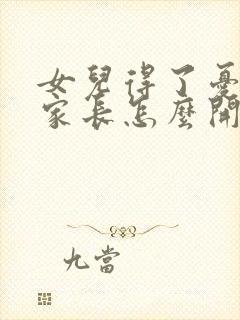 女兒得了憂
家長怎麼開
九當